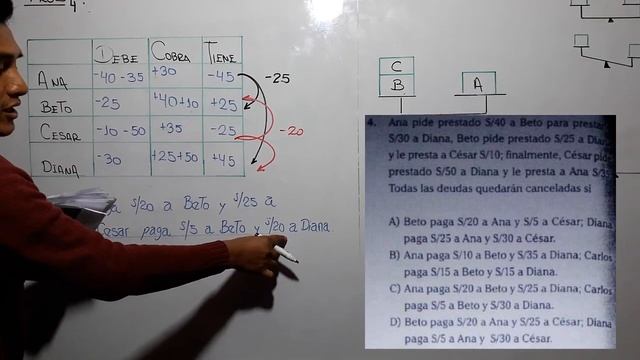 4.
DEBE COBRA TIENE
ANA -40 -35 +30 -45 -25
BETO -25 +40+10 +25
CESAR -10 -50 +35 -25 -20
DIANA -30 +25+50 +45
S/20 a BeTo y S/25 a
Cesar paga S/5 a BeTo y S/20 a Diana
C
B
A
4. Ana pide prestado S/40 a Beto para
S/30 a Diana, Beto pide prestado S/25 a
y le presta a César S/10; finalmente, César
prestado S/50 a Diana y le presta a Ana
Todas las deudas quedarán canceladas si
A) Beto paga S/20 a Ana y S/5 a César; Diana
paga S/25 a Ana y S/30 a César.
B) Ana paga S/10 a Beto y S/35 a Diana; Carlos
paga S/15 a Beto y S/15 a Diana.
C) Ana paga S/20 a Beto y S/25 a Diana; Carlos
paga S/5 a Beto y S/30 a Diana.
D) Beto paga S/20 a Ana y S/25 a César; Diana
paga S/5 a Ana y S/30 a César.